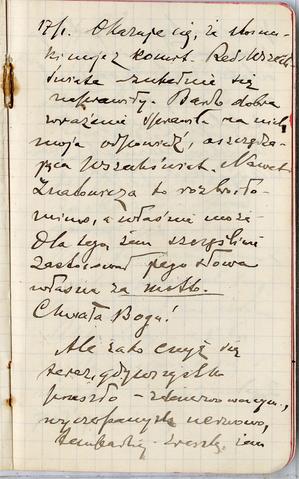 17/I. Okazuje się, że stosun-
ki moje z komit. Red. Wszech-
świata – zupełnie się
naprawiły. Bardzo dobre
wrażenie sprawiła na nich
moja odpowiedź, oszczędza-
jąca Wszechświat. Nawet
Znatowicza to rozbroiło
mimo, a właśnie może
dla tego, żem szczęśliwie
zastosował jego słowa
własne za motto.
Chwała Bogu!
Ale zato czuję się
teraz, gdy wszystko
przeszło – zdenerwowanym,
wyczerpanym nerwowo,
żem